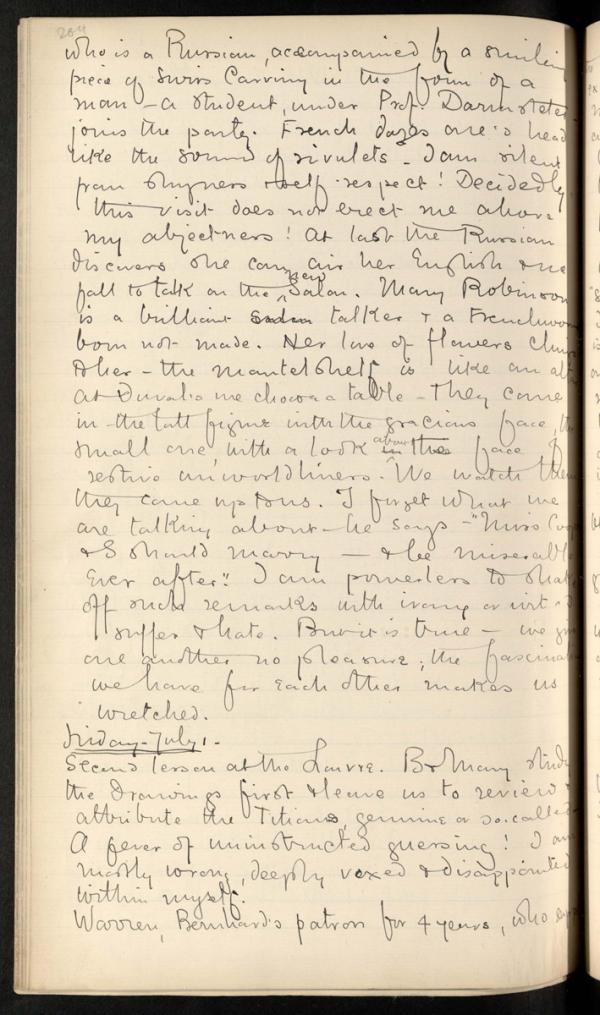 204
who is a Russian, accompanied by a smiling
piece of Swiss Carving in the form of a
man – a student, under Prof. Darmsteter
joins the party. French dazes one's head
like the sound of rivulets – I am silent
from shyness & self-respect! Decidedly
this visit does not erect me above
my abjectness! At last the Russian
discovers she can air her English & we
fall to talk on the new Salon. Mary Robinson
is a brilliant talker & a Frenchwom
born not made. Her love of flowers cling
to her – the mantelshelf is like an alta
At Duval's we choose a table – They come
in – the tall figure with the gracious face, the
small one with a look about the face of
restive unworldliness. We watch them
they come up to us. I forget what we
are talking about – he says – "Miss Coop
& I should marry — & be miserable
ever after". I am powerless to shake
off such remarks with irony or wit – I
suffer & hate. But it is true – we give
one another no pleasure; the fascinat
we have for each other makes us
wretched.
Friday – July 1.
Second lesson at the Louvre. B & Mary study
the Drawings first & leave us to review &
attribute the Titians, genuine or so-called
A fever of uninstructed guessing! I am
mostly wrong, deeply vexed & disappointed
within myself.
Warren, Bernhard's patron for 4 years, who